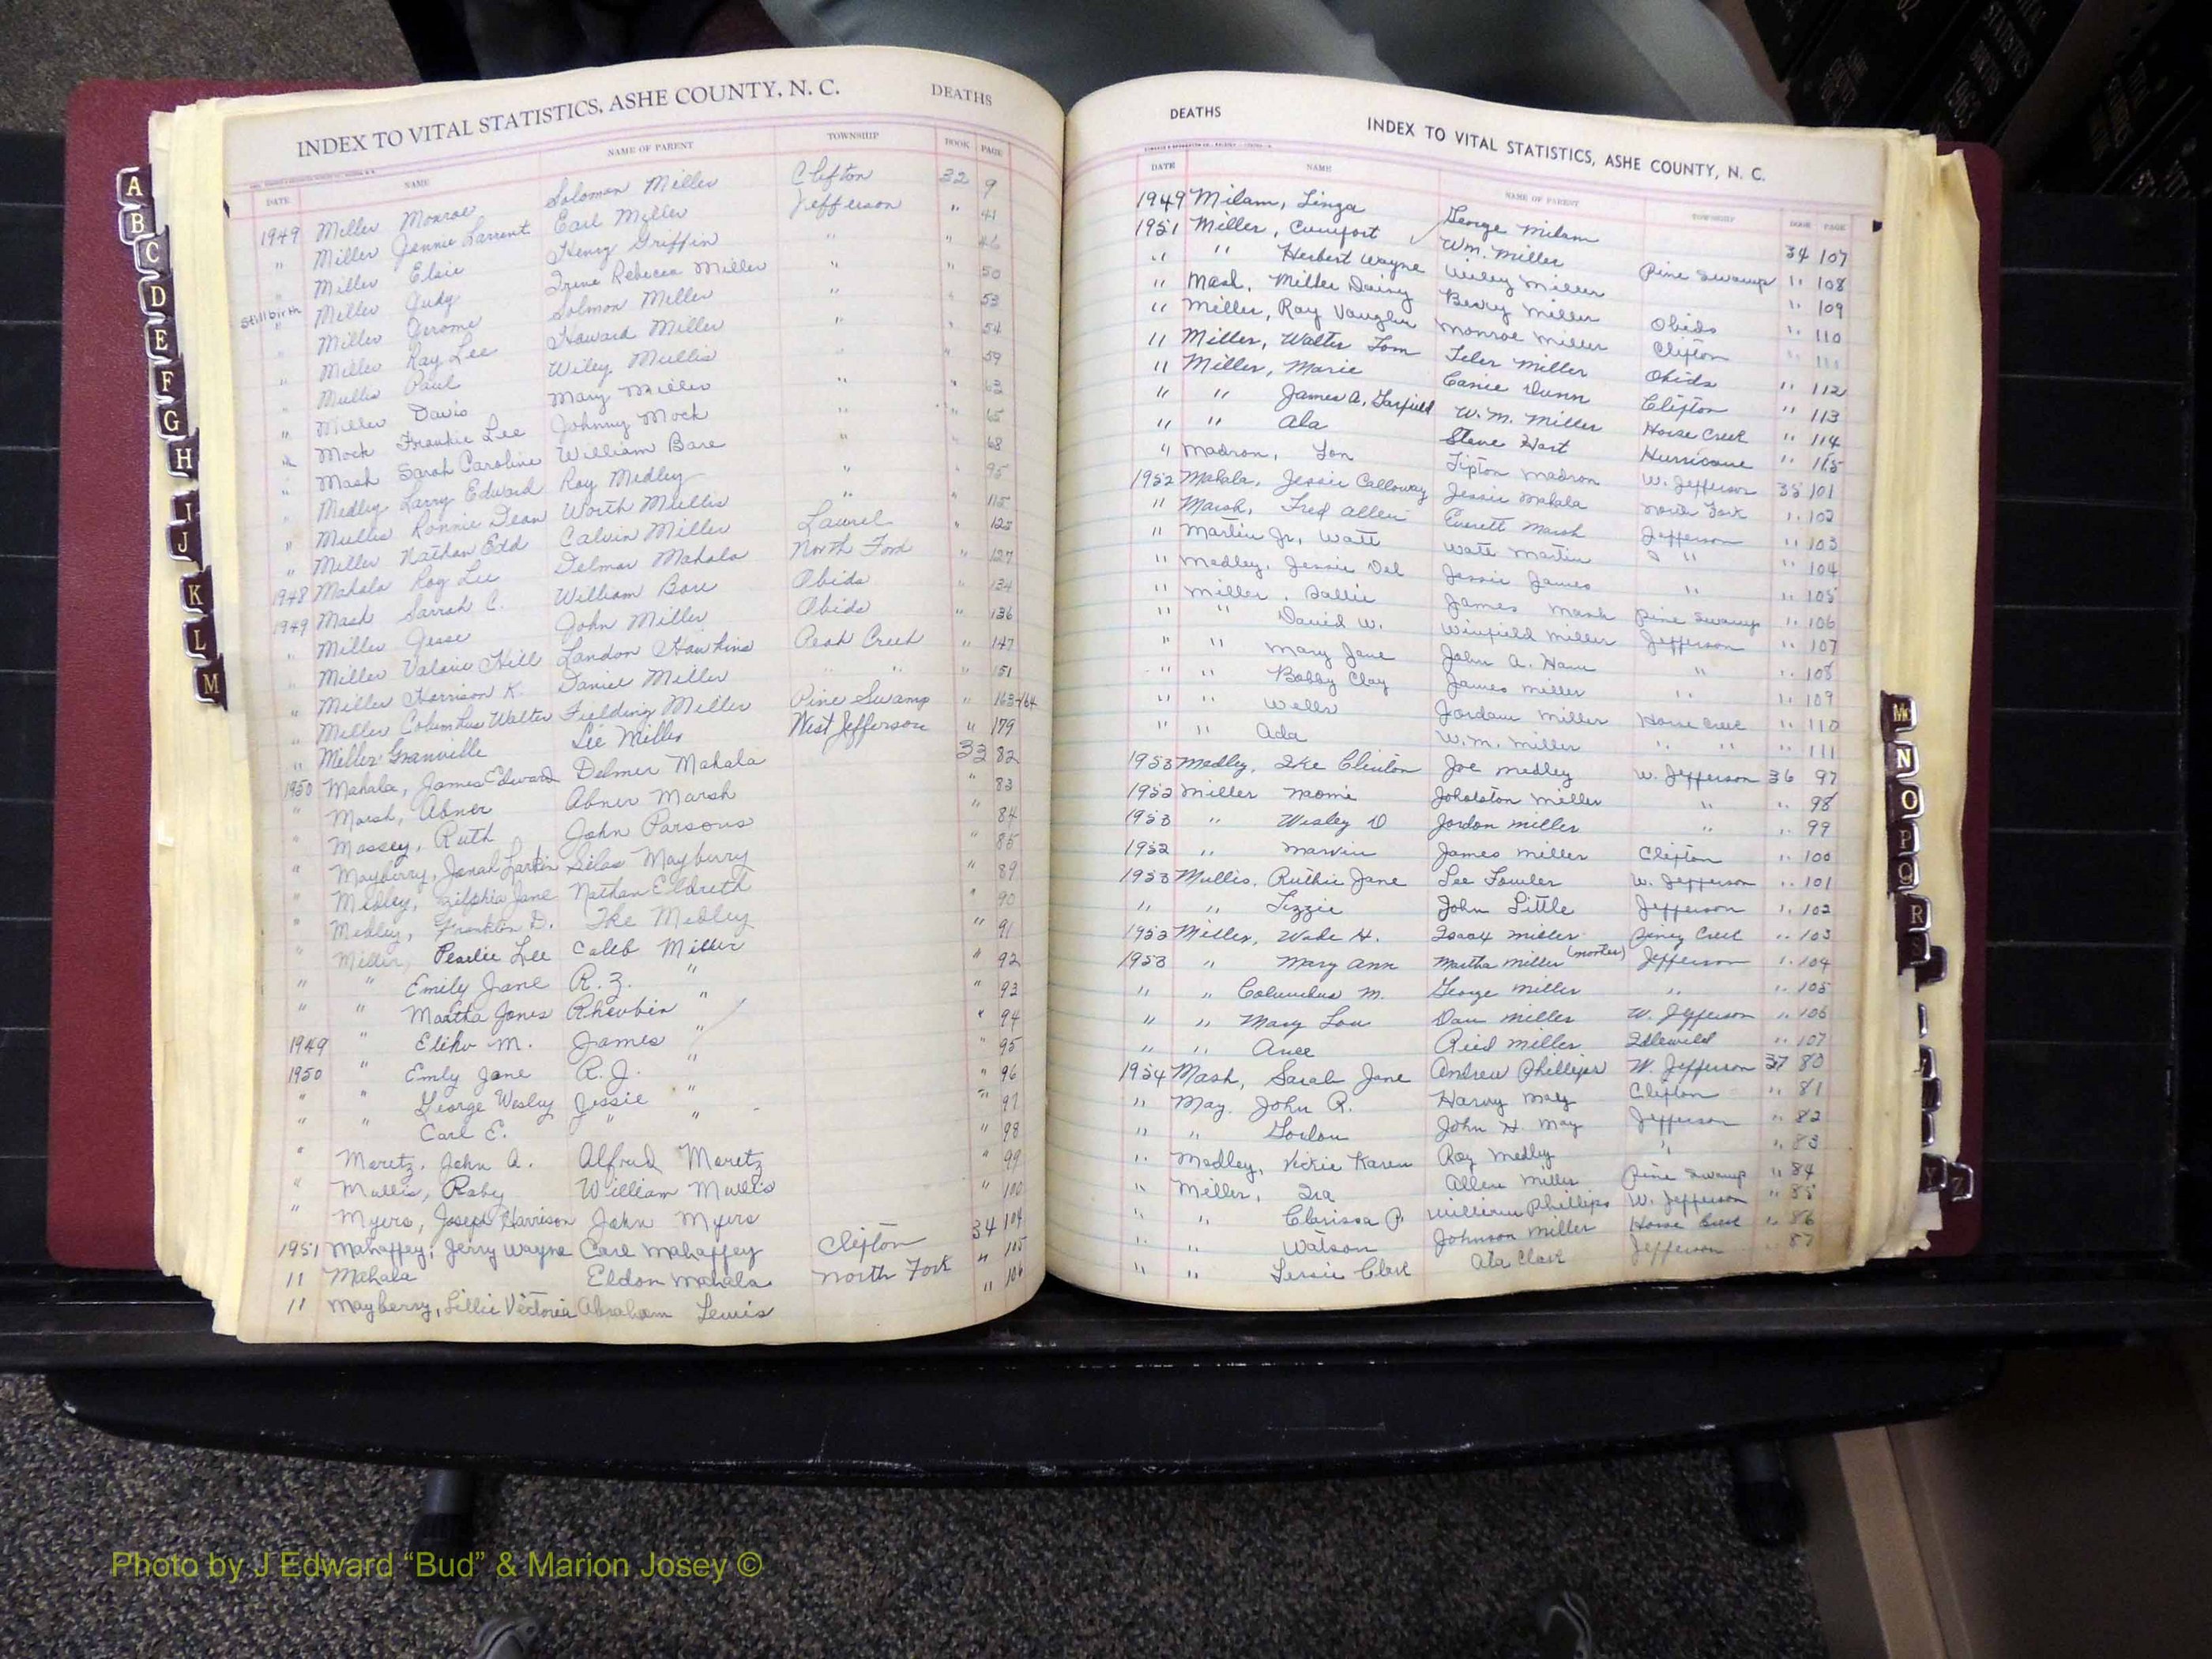 INDEX TO VITAL STATISTICS, ASHE COUNTY, N. C. DEATHS
DATE NAME NAME OF PARENT TOWNSHIP BOOK PAGE
1949 Miller Monroe Solomon Miller Clifton 32 9
" Miller Jennie Larrent Earl Miller Jefferson " 41
Miller Elsie Henry Griffin " " 46
Stillbirth " Miller Judy Irene Rebecca Miller " " 50
Miller Jerome Solmon Miller " " 53
" Miller Ray Lee Howard Miller " " 54
" Mullis Paul Wiley Mullis " " 59
" Miller Davis Mary Miller " " 63
" Mock Frankie Lee Johnny Mock " " 65
" Mash Sarah Caroline William Bare " " 68
" Medley Larry Edward Roy Medley " " 95
" Mullis Ronnie Dean Worth Mullis " " 115
" Miller Nathan Edd Calvin Miller Laurel " 125
1948 Mahala Roy Lee Delmar Mahala North Fork " 127
1949 Mash Sarrah C. William Bare Obids " 134
" Miller Jesse John Miller Obids " 136
" Miller Valarie Hill Landon Hawkins Peak Creek " 147
" Miller Harrison K. Daniel Miller " " " 151
" Miller Columbus Walter Fielding Miller Pine Swamp " 163-164
" Miller Granville Lee Miller West Jefferson " 179
1950 Mahala, James Edward Delmer Mahala 33 82
" Marsh, Abner Abner Marsh " 83
" Massey, Ruth John Parsons " 84
" Mayberry, Jonah Larkin Silas Mayberry " 85
" Medley, Zilphia Jane Nathan Eldreth " 89
" Medley, Franklin D. Ike Medley " 90
" Miller, Pearlie Lee Caleb Miller " 91
" " Emily Jane R. Z. " " 92
" " Martha Jones Rheubin " " 93
1949 " Elihu M. James " " 94
1950 " Emly Jane R. J. " " 95
" " George Wesley Jessie " " 96
" " Carl E. " " " 97
" Moretz, John A. Alfred Moretz " 98
" Mullis, Roby William Mullis " 99
" Myers, Joseph Harrison John Myers " 100
1951 Mahaffey, Jerry Wayne Carl Mahaffey Clifton 34 104
11 Mahala Eldon Mahala North Fork " 105
11 Mayberry, Lillie Victoria Abraham Lewis " 106
DEATHS INDEX TO VITAL STATISTICS, ASHE COUNTY, N. C.
DATE NAME NAME OF PARENT TOWNSHIP BOOK PAGE
1949 Milam, Linza George Milam
1951 Miller, Comfort Wm. Miller 34 107
" " Herbert Wayne Wiley Miller Pine Swamp " 108
" Mash, Miller Daisy Berry Miller " 109
" Miller, Ray Vaughn Monroe Miller Obids " 110
11 Miller, Walter Tom Teler Miller Clifton " 111
11 Miller, Marie Canie Dunn Obids " 112
" " James A. Garfield W. M. Miller Clifton " 113
" " Ala Steve Hart Horse Creek " 114
" Madron, Lon Tipton Madron Hurricane " 115
1952 Mahala, Jessie Calloway Jessie Mahala W. Jefferson 35 101
" Marsh, Fred Allen Everett Marsh North Fork " 102
" Martin Jr., Watt Watt Martin Jefferson " 103
" Medley, Jessie Del Jessie James " " 104
" Miller, Sallie James Mash " " 105
" " David W. Winfield Miller Pine Swamp " 106
" " Mary Jane John A. Ham Jefferson " 107
" " Bobby Clay James Miller " " 108
" " Wells Jordan Miller " " 109
" " Ada W. M. Miller Horse Creek " 110
" " " 111
1953 Medley, Ike Clinton Joe Medley W. Jefferson 36 97
1952 Miller Naomi Joholston Miller " " 98
1953 " Wesley D Jordon Miller " " 99
1952 " Marvin James Miller Clifton " 100
1953 Mullis, Ruthie Jane Lee Fowler W. Jefferson " 101
" " Lizzie John Little Jefferson " 102
1952 Miller, Wade H. Isaax Miller Piney Creek " 103
1953 " Mary Ann Martha Miller (mother) Jefferson " 104
" " Columbus M. George Miller " " 105
" " Mary Lou Dan Miller W. Jefferson " 106
" " Anee Reid Miller Idlewild " 107
1954 Mash, Sarah Jane Andrew Phillips W. Jefferson 37 80
" May, John R. Harvy May Clifton " 81
" " Gordon John H. May Jefferson " 82
" Medley, Vickie Karen Roy Medley " " 83
" Miller, Ira Allen Miller Pine Swamp " 84
" " Clarissa P. William Phillips W. Jefferson " 85
" " Watson Johnson Miller Horse Creek " 86
" " Lessie Clark Ala Clark Jefferson " 87
A
B
C
D
E
F
G
H
I
J
K
L
M
Mc
N
O
P
Q
R
S
Y
Z
Photo by J Edward “Bud” & Marion Josey ©